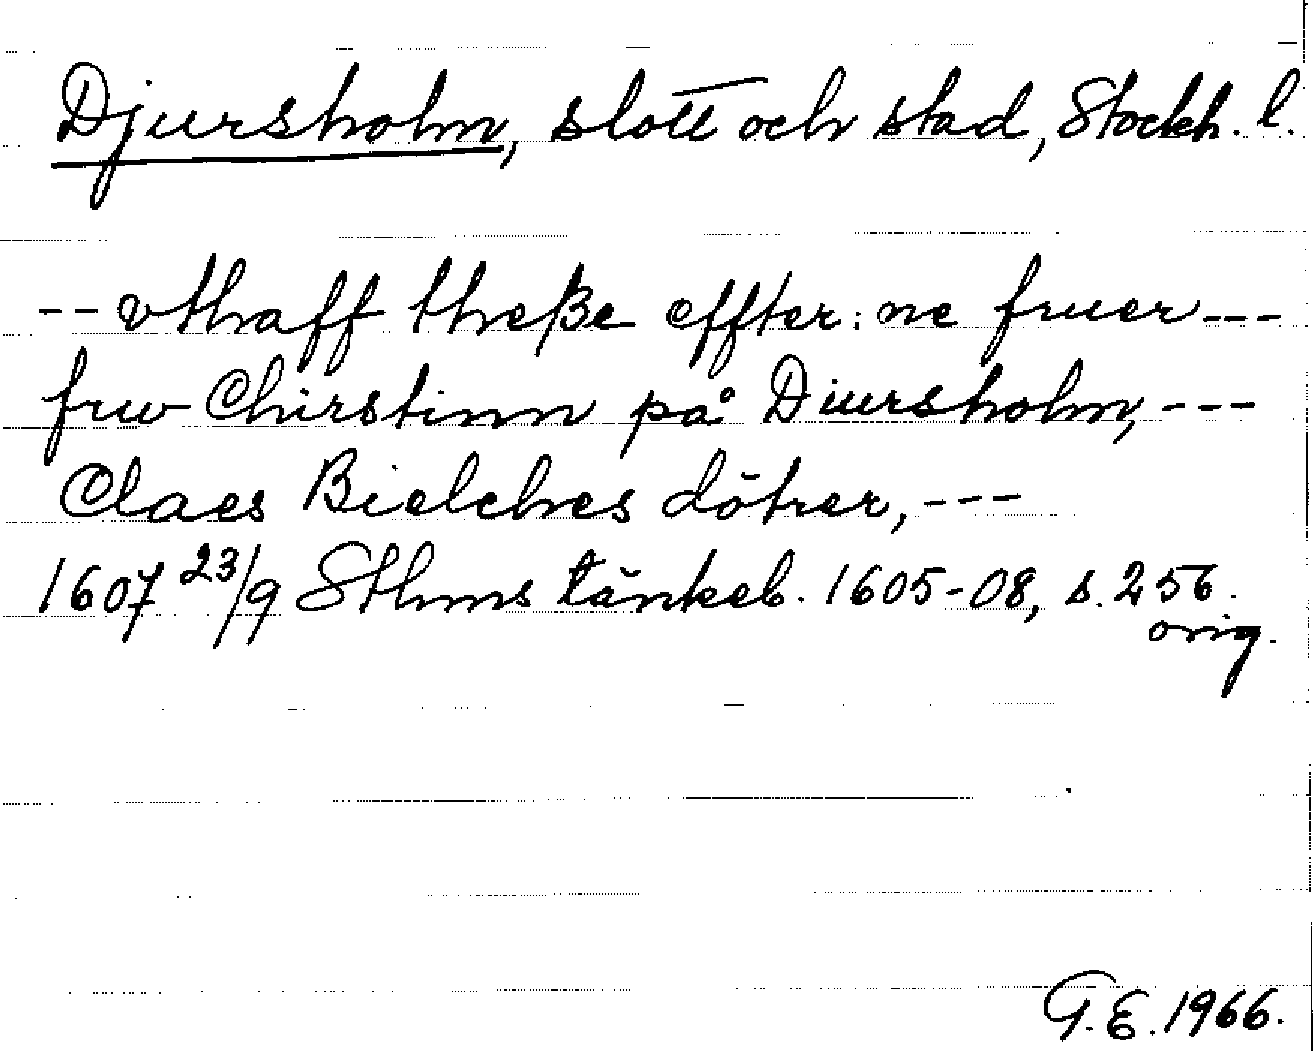 Djursholm, slott och stad, Stockh. l.
-- vthaff theße effter: ne fruer ---
frw Chirstinn på Diursholm, ---
Claes Bielches dötrer, ---
1607 23/9 Sthms tänkeb. 1605-08, s. 256.
orig.
G. E. 1966.